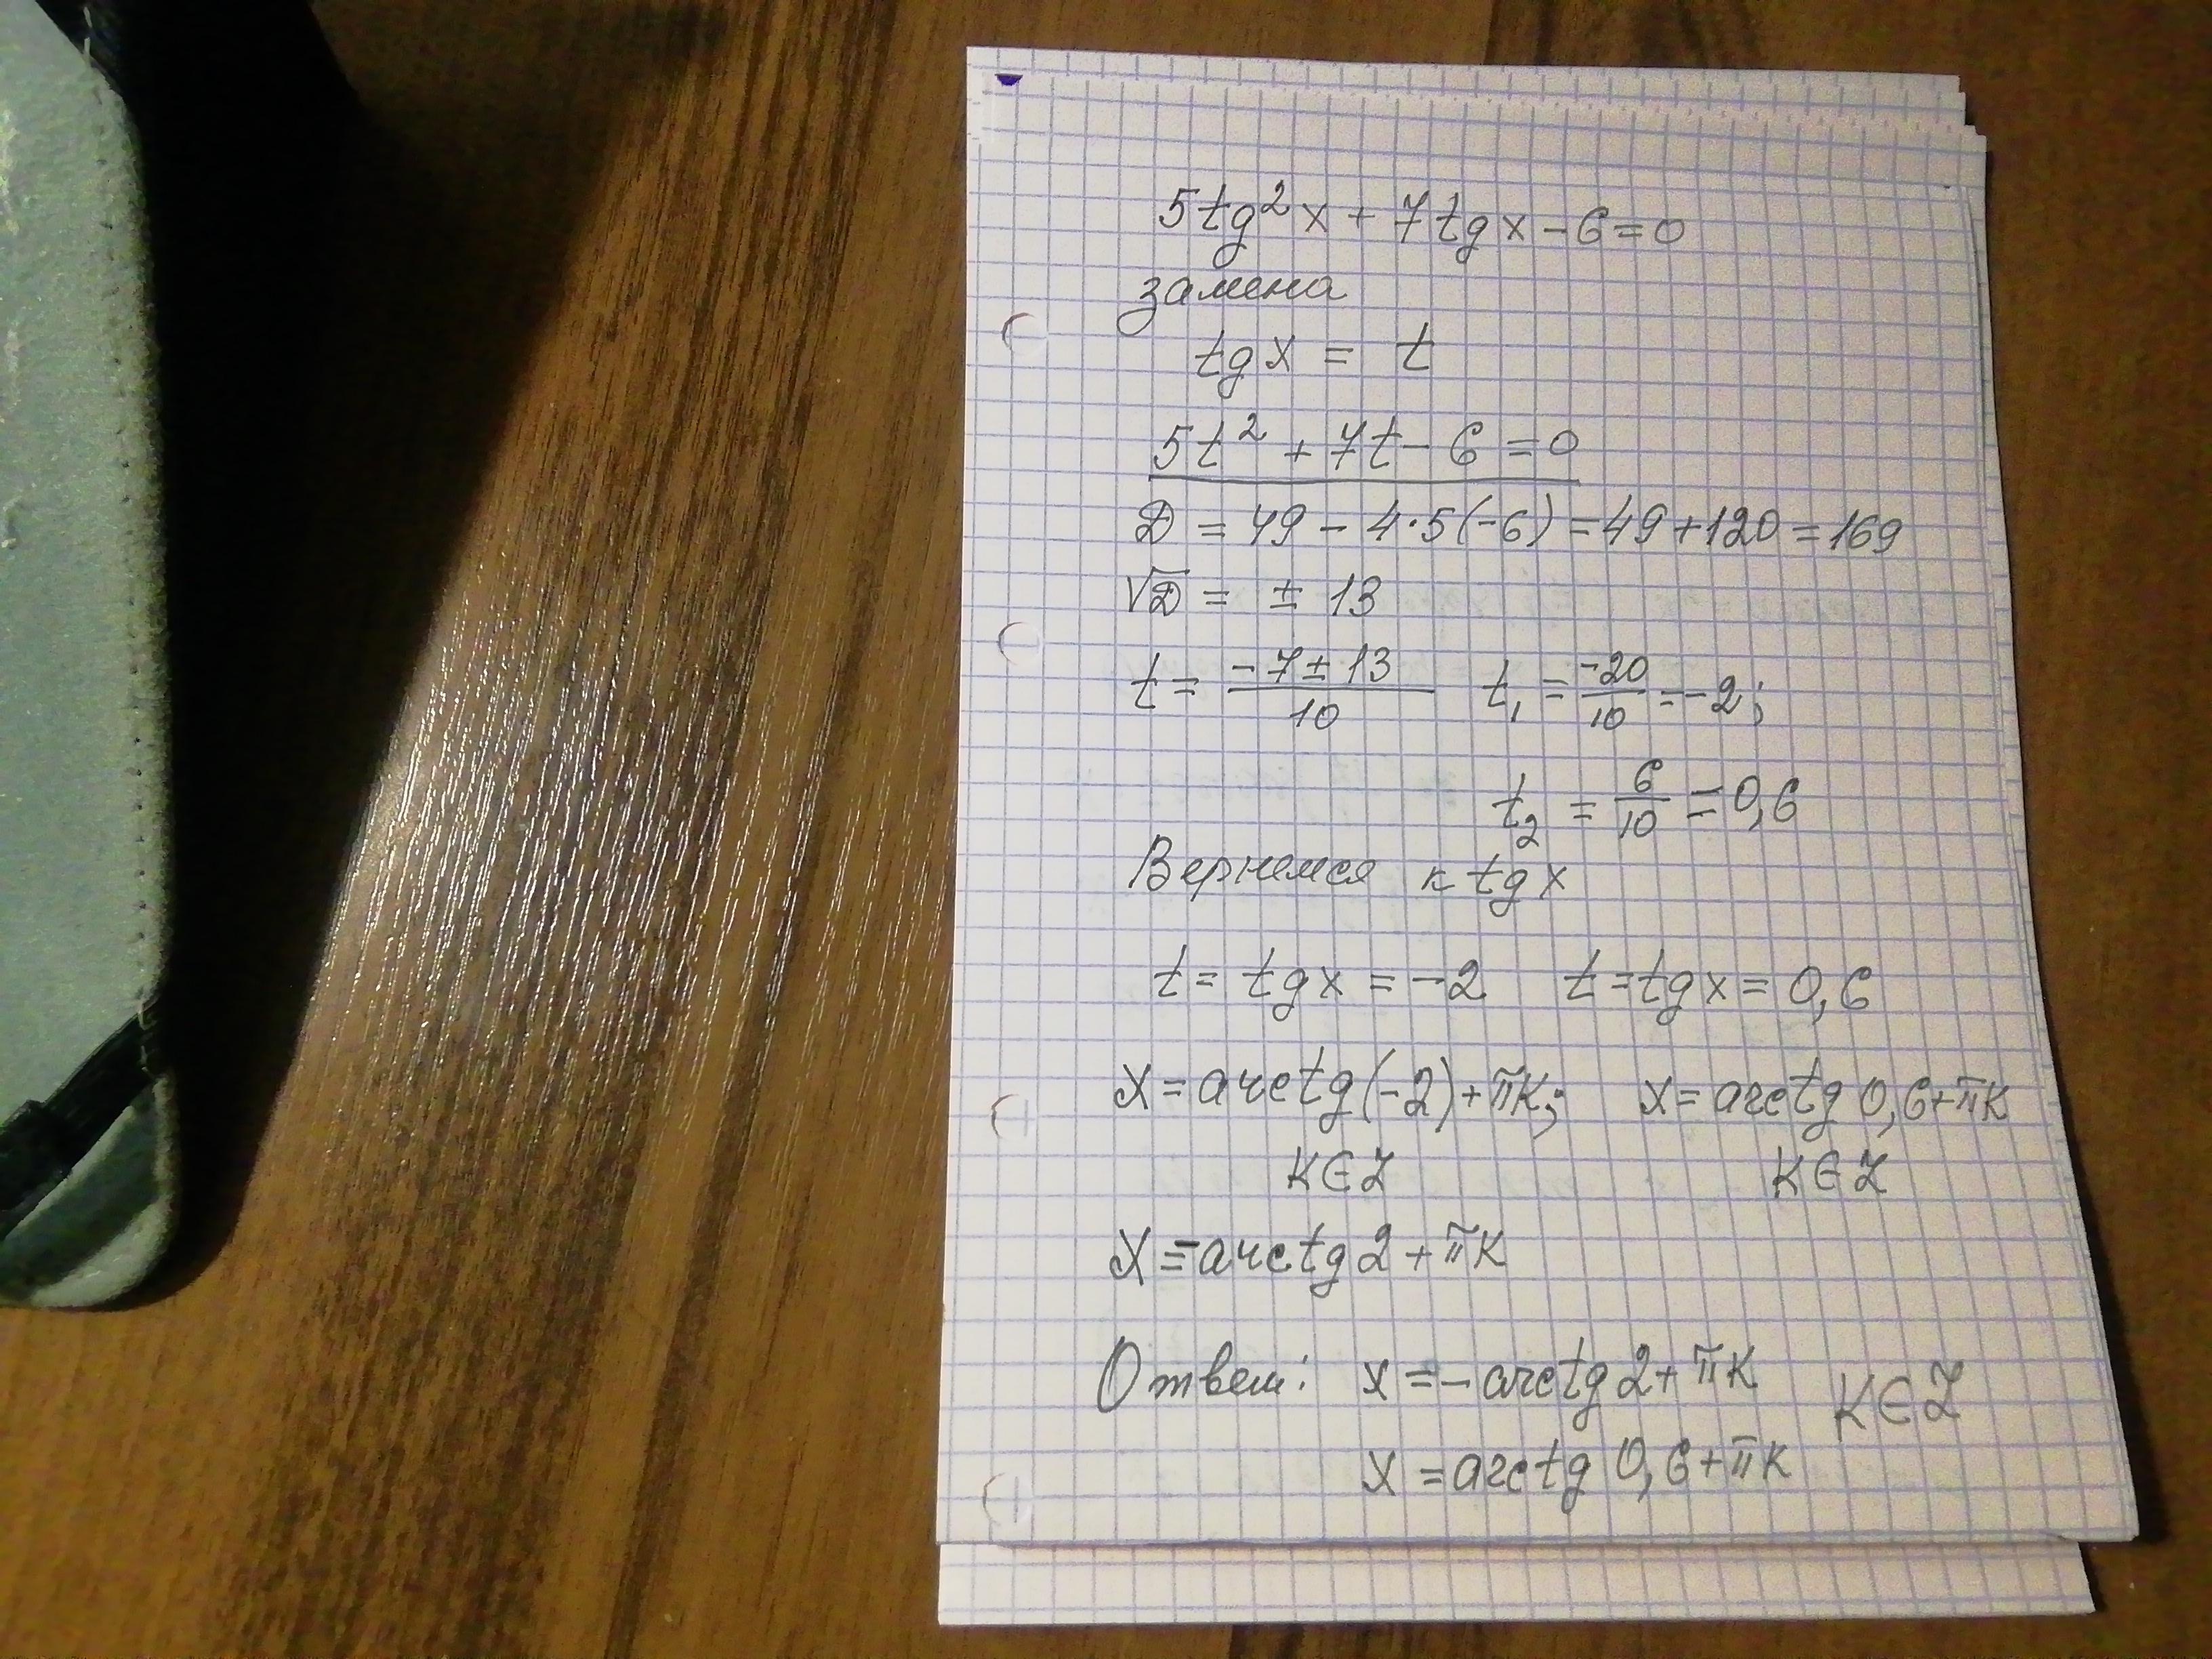 5tg²x + 7tgx - 6 = 0
замена
tgx = t
5t² + 7t - 6 = 0
D = 49 - 4·5(-6) = 49 + 120 = 169
√D = ± 13
t = (-7 ± 13)/10 t₁ = -20/10 = -2;
t₂ = 6/10 = 0,6
Вернемся к tgx
t = tgx = -2 t = tgx = 0,6
x = arctg(-2) + πк; x = arctg 0,6 + πк
К∈Z К∈Z
x = -arctg 2 + πк
Ответ: x = -arctg 2 + πк К∈Z
x = arctg 0,6 + πк